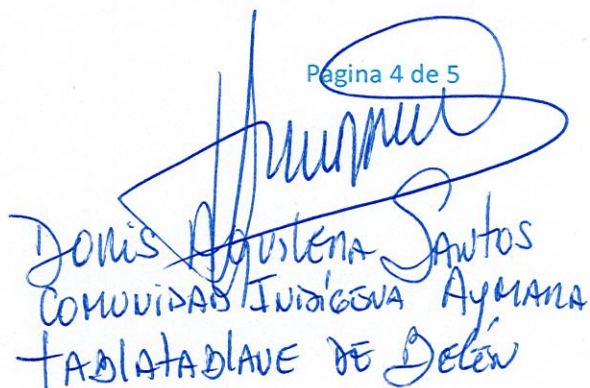 Pagina 4 de 5
Doris Aguilera Santos
COMUNIDAD INDÍGENA AYMARA
TABLATABLAVE DE BELÉN